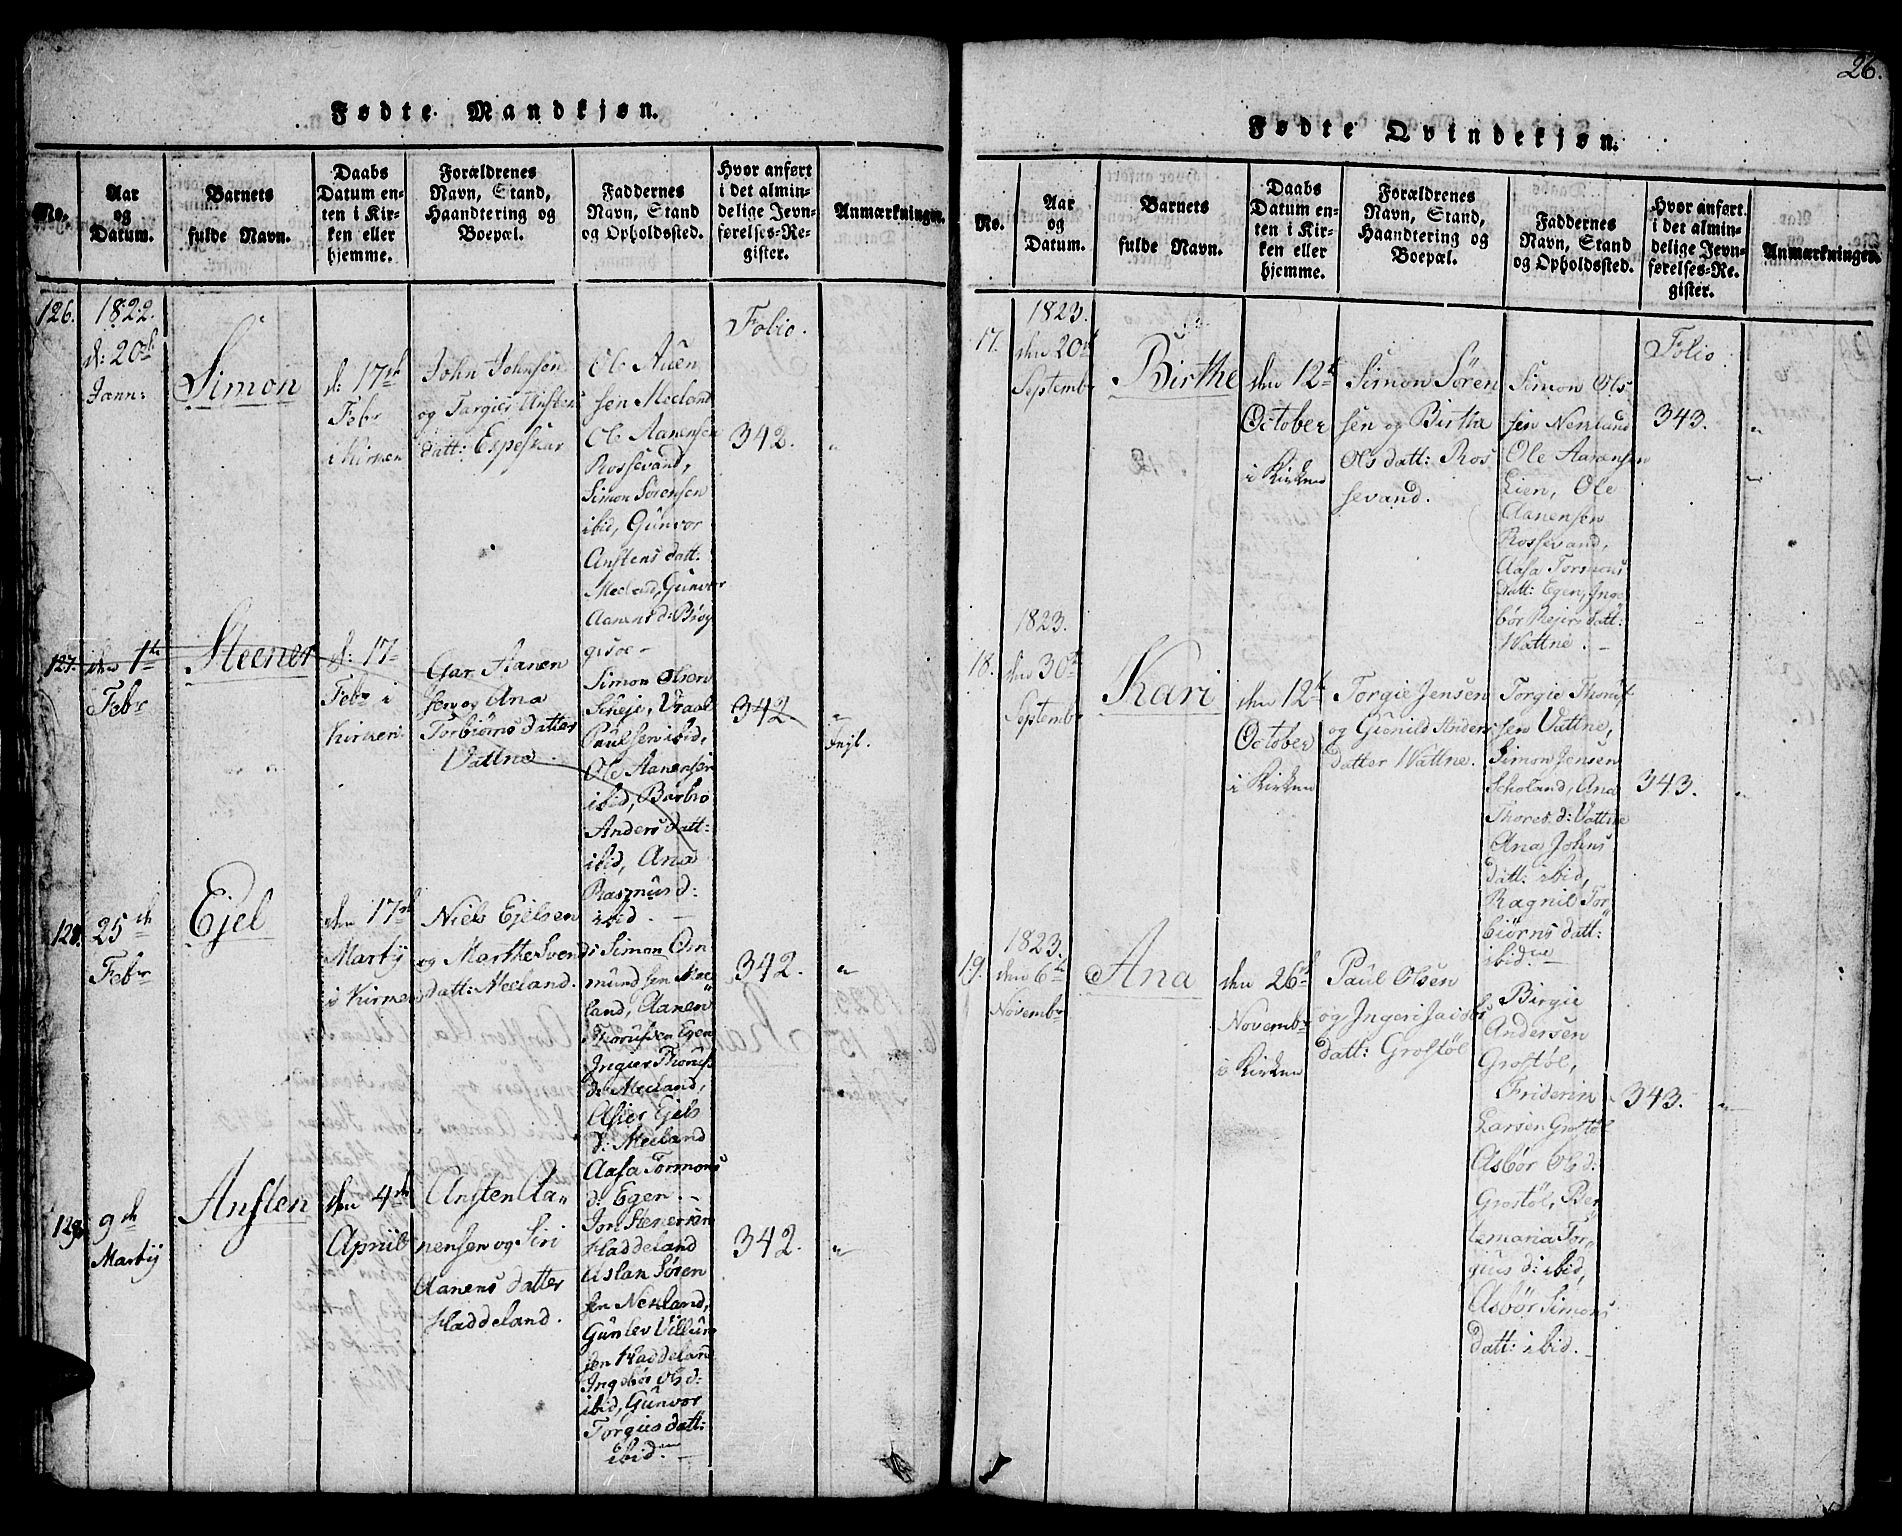 26.
Fødte Mandkjøn.
No.
Aar
og
Datum.
Barnets
fulde Navn.
Daabs
Datum en-
ten i Kir-
ken eller
hjemme.
Forældrenes
Navn, Stand,
Haandtering og
Boepæl.
Faddernes
Navn, Stand
og Opholdssted.
Hvor anført
i det almin-
delige Jevn-
førelses-Re-
gister.
Anmærkninger.
126.
1822.
d: 20de
Jann:
Simon
d: 17de
Febr
i Kirken
John Johnsen
og Torgier Ansten
datt: Espeskar
Ole Auen
sen Meeland
Ole Aanensen
Rossevand,
Simon Sørensen
ibid, Gunvor
Anstens datt:
Meeland, Gunvor
Aanens d: Brøg
gisoe -
Folio.
342.
127.
den 1te
Febr
Steener
d: 17
Febr i
Kirken
Gar Aanen
sen og Ana
Torbiørns datter
Vattne
Simon Olsen
Sineje, Vraal
Paulsen ibid,
Ole Aanensen
ibid, Barbro
Anders datt:
ibid, Ana
Rasmus d:
ibid. -
342
Fejl.
128.
25de
Febr
Ejel
den 17de
Martij
i Kirken
Niels Ejelsen
og Marthe Svends
datt: Meeland.
Simon Om
mundsen Mee
land, Aanen
Thorussen Egen
Ingier Thorus
d: Meeland,
Asier Ejels
d: Meeland
Aasa Tormons
d: Egen. -
342.
129.
9de
Martij
Ansten
den 4de
April
Ansten Aa-
nensen og Siri
Aanens datter
Haddeland.
Jon Stenersen
Haddeland
Aslan Søren
sen Nekland,
Gunlev Villum
sen Haddeland
Ingebør Ols d:
ibid, Gunvor
Torgiers datt:
ibid. -
342.
Fødte Qvindekjøn.
No.
Aar
og
Datum.
Barnets
fulde Navn.
Daabs
Datum en-
ten i Kir-
ken eller
hjemme.
Forældrenes
Navn, Stand,
Haandtering og
Boepæl.
Faddernes
Navn, Stand
og Opholdssted.
Hvor anført
i det almin-
delige Jevn-
førelses-Re-
gister.
Anmærkninger.
17.
1823.
den 20de
Septembr
Birthe
den 12te
October
i Kirken
Simon Søren
sen og Birthe
Ols datt: Ros
sevand.
Simon Ols
sen Neslund
Ole Aanensen
Lien, Ole
Aanensen
Rossevand,
Aasa Tormons
datt: Egen, Inge
bør Rejers datt:
Wattne. -
Folio
343.
18.
1823.
den 30te
Septembr
Kari
den 12te
October
i Kirken
Torgie Jensen
og Gunild Anders
datter Wattne.
Torgie Thorus
sen Vattne,
Simon Jensen
Scholand, Ana
Thores d: Vattne
Ana Johns
datt: ibid,
Ragnil Tor
biørns datt:
ibid.
343.
19.
1823.
den 6te
Novembr
Ana
den 26de
Novembr
i Kirken
Paul Olsen
og Ingeri Jacobs
datt: Grostøl
Birgie
Andersen
Grostøl,
Friderin
Larsen Grostøl
Asbør Ols d:
Grostøl, Ber
temaria Tor-
gius d: ibid,
Asbør Simons
datt: ibid. -
343.